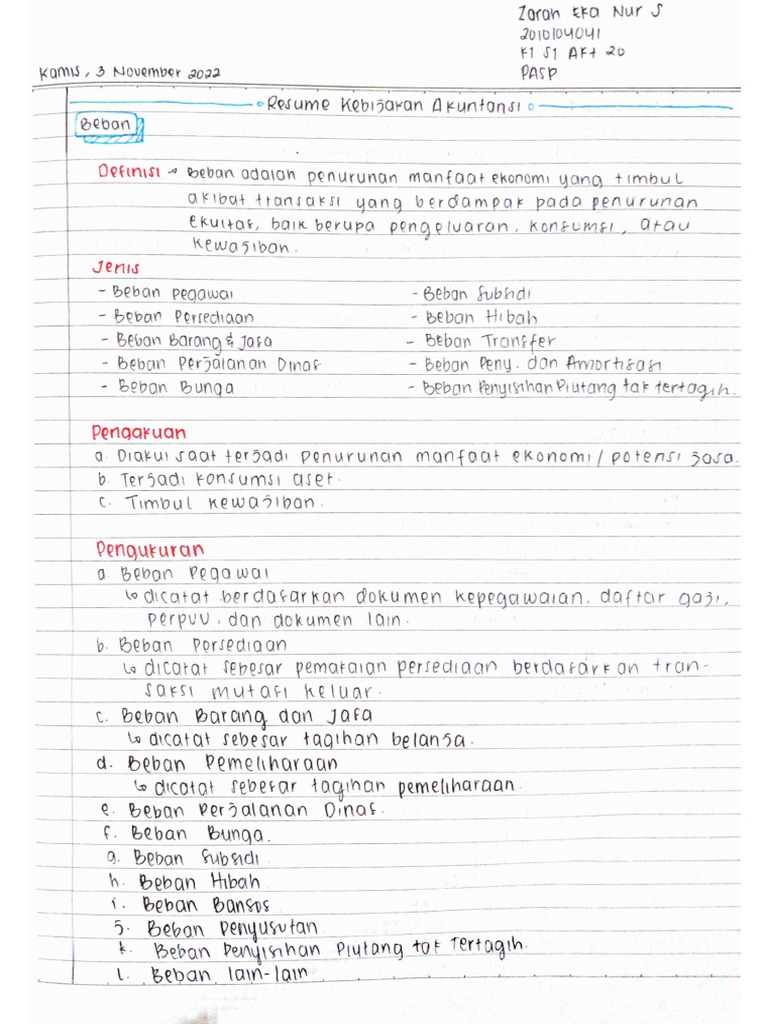 Zarah Eka Nur S
2010104041
K1 S1 AKt 20
PASP
Kamis, 3 November 2022
Resume Kebijakan Akuntansi
Beban
Definisi → Beban adalah penurunan manfaat ekonomi yang timbul
akibat transaksi yang berdampak pada penurunan
ekuitas, baik berupa pengeluaran, konsumsi, atau
kewajiban.
Jenis
- Beban Pegawai
- Beban Persediaan
- Beban Barang & Jasa
- Beban Perjalanan Dinas
- Beban Bunga
- Beban Subsidi
- Beban Hibah
- Beban Transfer
- Beban Peny. dan Amortisasi
- Beban Penyisihan Piutang tak tertagih.
Pengakuan
a. Diakui saat terjadi penurunan manfaat ekonomi / potensi jasa.
b. Terjadi konsumsi aset.
c. Timbul kewajiban.
Pengukuran
a. Beban Pegawai
↳ dicatat berdasarkan dokumen kepegawaian, daftar gaji,
perpuu, dan dokumen lain.
b. Beban Persediaan
↳ dicatat sebesar pemakaian persediaan berdasarkan tran-
saksi mutasi keluar.
c. Beban Barang dan Jasa
↳ dicatat sebesar tagihan belanja.
d. Beban Pemeliharaan
↳ dicatat sebesar tagihan pemeliharaan.
e. Beban Perjalanan Dinas.
f. Beban Bunga.
g. Beban Subsidi
h. Beban Hibah
i. Beban Bansos
j. Beban Penyusutan
k. Beban Penyisihan Piutang tak Tertagih.
l. Beban lain-lain